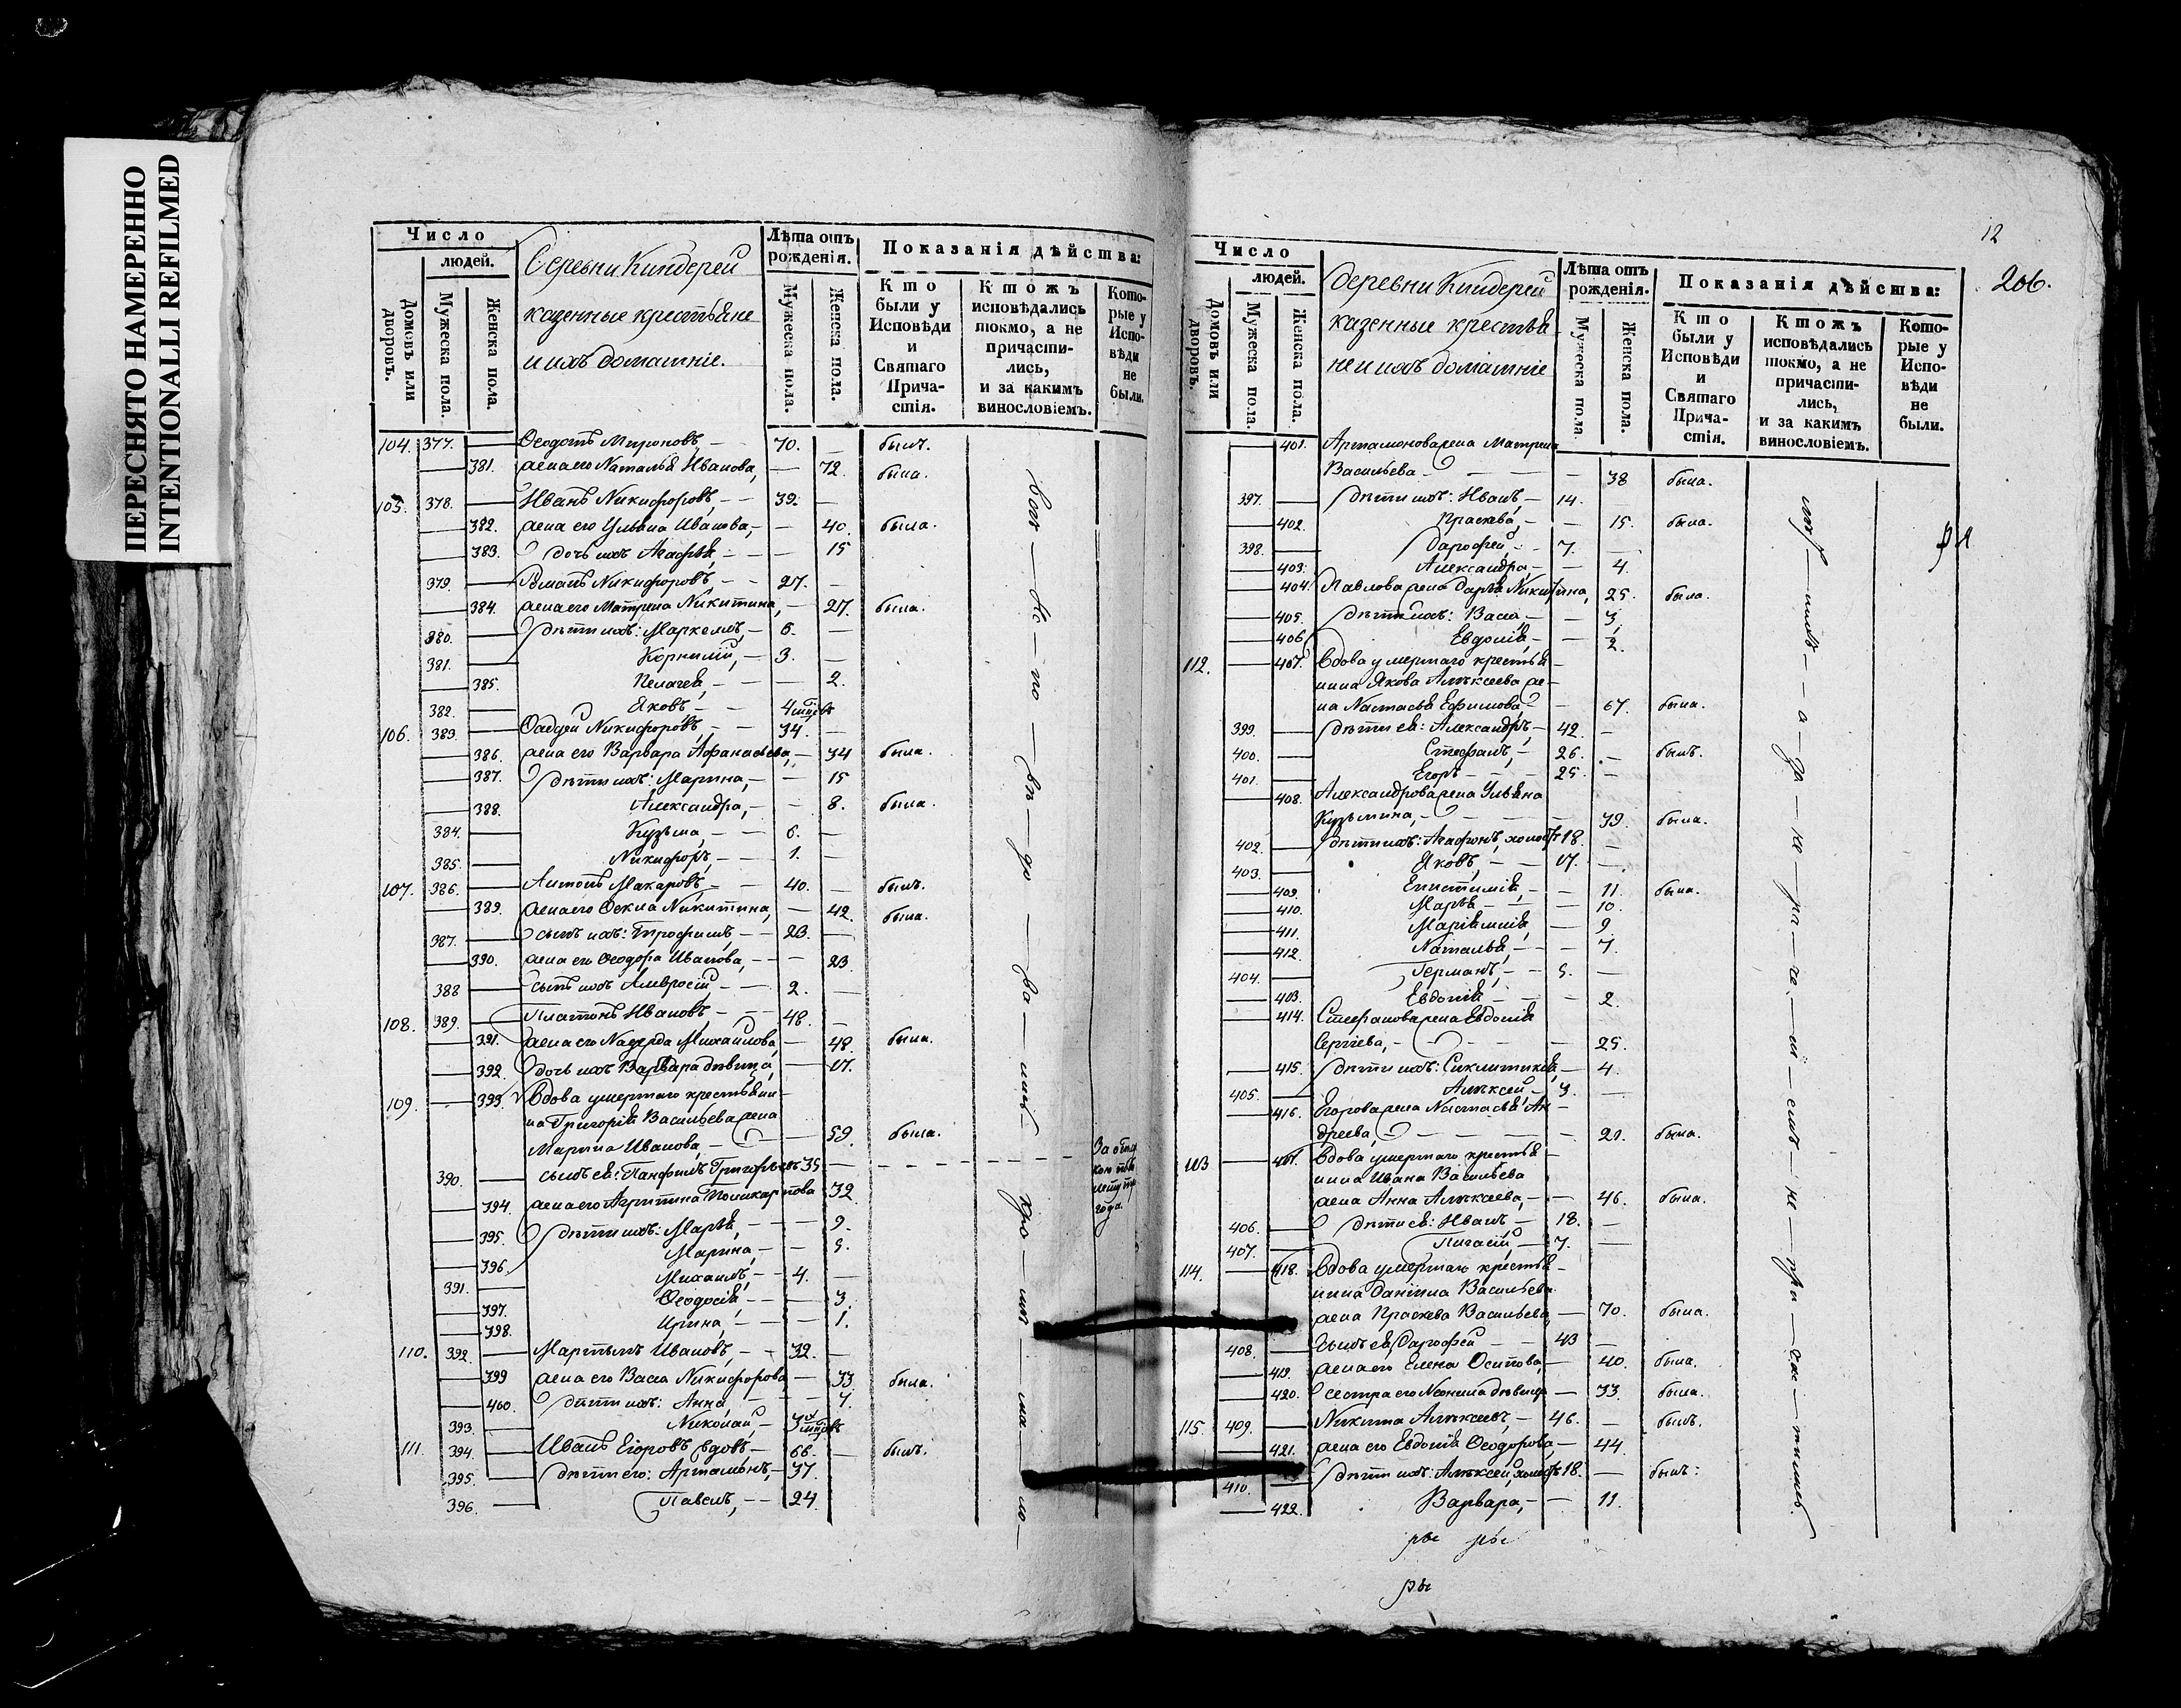 ПЕРЕСНЯТО НАМЕРЕННО
INTENTIONALLI REFILMED
Число
людей.
Домовъ или дворовъ.
Мужеска пола.
Женска пола.
Деревни Киндерей
казенные крестьяне
и ихъ домашніе.
Лѣта отъ рожденія.
Мужеска пола.
Женска пола.
Показанія дѣйства:
Кто были у Исповѣди и Святаго Прича-стія.
Ктожъ исповѣдались токмо, а не причасти-лись, и за какимъ винословіемъ.
Кото-рые у Испо-вѣди не были.
104. 377. — Ѳеодотъ Мироновъ, — 70. — былъ.
— 381. жена его Наталья Иванова, — 72. была.
105. 378. — Иванъ Никифоровъ, — 39. —
— 382. жена его Ульяна Иванова, — 40. была.
— 383. дочь ихъ Агафья — — 15
379. — Романъ Никифоровъ, — 27. —
— 384. жена его Матрена Никитина, — 27. была.
380. — дѣти ихъ: Маркеллъ, — 6. —
381. — Корнилій, — 3. —
— 385. Пелагея, — — 2.
382. — Яковъ — 4
106. 383. — Ѳаддей Никифоровъ, — 34. —
— 386. жена его Варвара Афанасьева, — 34 была.
— 387. дѣти ихъ: Марина, — — 15
— 388. Александра, — — 8. была.
384. — Кузьма, — 6. —
385. — Никифоръ, — 1. —
107. 386. — Антонъ Макаровъ, — 40. — былъ.
— 389. жена его Ѳекла Никитина, — 42. была.
387. — сынъ ихъ: Трофимъ — 23. —
— 390. жена его Ѳеодора Иванова, — — 23
388 — сынъ ихъ Амвросій — 2. —
108. 389. — Платонъ Ивановъ — 48. —
— 391. жена его Надежда Михайлова, — 48. была.
— 392. дочь ихъ Варвара дѣвица, — 17.
109. — 393. Вдова умершаго крестьяни-
на Григорія Васильева жена
Марина Иванова, — — 59. была.
390. — сынъ ея: Панфилъ Григорьевъ 35 —
— 394. жена его Поликарпова 32
— 395. дѣти ихъ: Марья, — — 9.
— 396. Марина, — — 5.
391. — Михаилъ, — 4. —
— 397. Ѳеодосія, — — 3.
— 398. Ирина, — — 1.
110. 392. — Мартынъ Ивановъ, — 32. —
— 399 жена его Васса Никифорова, — 33 была.
— 400. дѣти ихъ: Анна, — — 4.
393. — Николай, — 3
111. 394. — Иванъ Егоровъ вдовъ — 66. — былъ.
395. — дѣти его: Артамонъ, — 37.
396. — Павелъ, — 24.
года.
12
206.
Число
людей.
Домовъ или дворовъ.
Мужеска пола.
Женска пола.
Деревни Киндерей
казенные крестья-
не и ихъ домашніе
Лѣта отъ рожденія.
Мужеска пола.
Женска пола.
Показанія дѣйства:
Кто были у Исповѣди и Святаго Прича-стія.
Ктожъ исповѣдались токмо, а не причасти-лись, и за какимъ винословіемъ.
Кото-рые у Испо-вѣди не были.
401. Артамонова жена Матрена
Васильева — — 38 была.
397. — дѣти ихъ: Иванъ, — 14.
— 402. Прасковья, — — 15. была.
398. — Дарофей, — 7. —
— 403. Александра, — — 4.
— 404. Павлова жена Дарья Никитина, 25. была.
— 405. дѣти ихъ: Васса, — — 3.
— 406. Евдокія, — — 1/2.
112. — 407. Вдова умершаго крестья-
нина Якова Алексеева же-
на Настасья Ефимова — 67. была.
399. — дѣти ея: Александръ, — 42. —
400. — Стефанъ, — 26. — былъ.
401. — Егоръ — 25. —
— 408. Александрова жена Ульяна
Кузьмина, — — 39. была.
402. — дѣти ихъ: Агафонъ, холостъ 18. —
403. — Яковъ, — 17. —
— 409. Епистимія, — — 11. была.
— 410. Марья — — 10.
— 411. Маріамнія, — 9.
— 412. Наталья, — — 7.
404. — Германъ, — 5. —
— 403. Евдокія — — 2.
— 414. Стефанова жена Евдокія
Сергѣева, — — 25.
— 415. дѣти ихъ: Синклитикія, — 4.
405. — Алексей — 3. —
— 416. Егорова жена Настасья Ан-
дреева, — — 21. была.
113 — 417. Вдова умершаго крестья-
нина Ивана Васильева
жена Анна Алексеева, — — 46. была.
406. — дѣти ея: Иванъ — 18. —
407. — Пигасій, — 7. —
114. — 418. Вдова умершаго крестья-
нина Даніила Васильева
жена Прасковья Васильева, — 70. была.
408. — сынъ ея Дарофей — 43 —
— 419. жена его Елена Осипова, — 40. была.
— 420. сестра его Неонила дѣвица — 33. была.
115. 409. — Никита Алексеевъ, — 46. — былъ.
— 421. жена его Евдокія Ѳеодорова, — 44.
410. — дѣти ихъ: Алексей, холостъ 18. — былъ:
— 422. Варвара, — — 11.
ры ры
ры